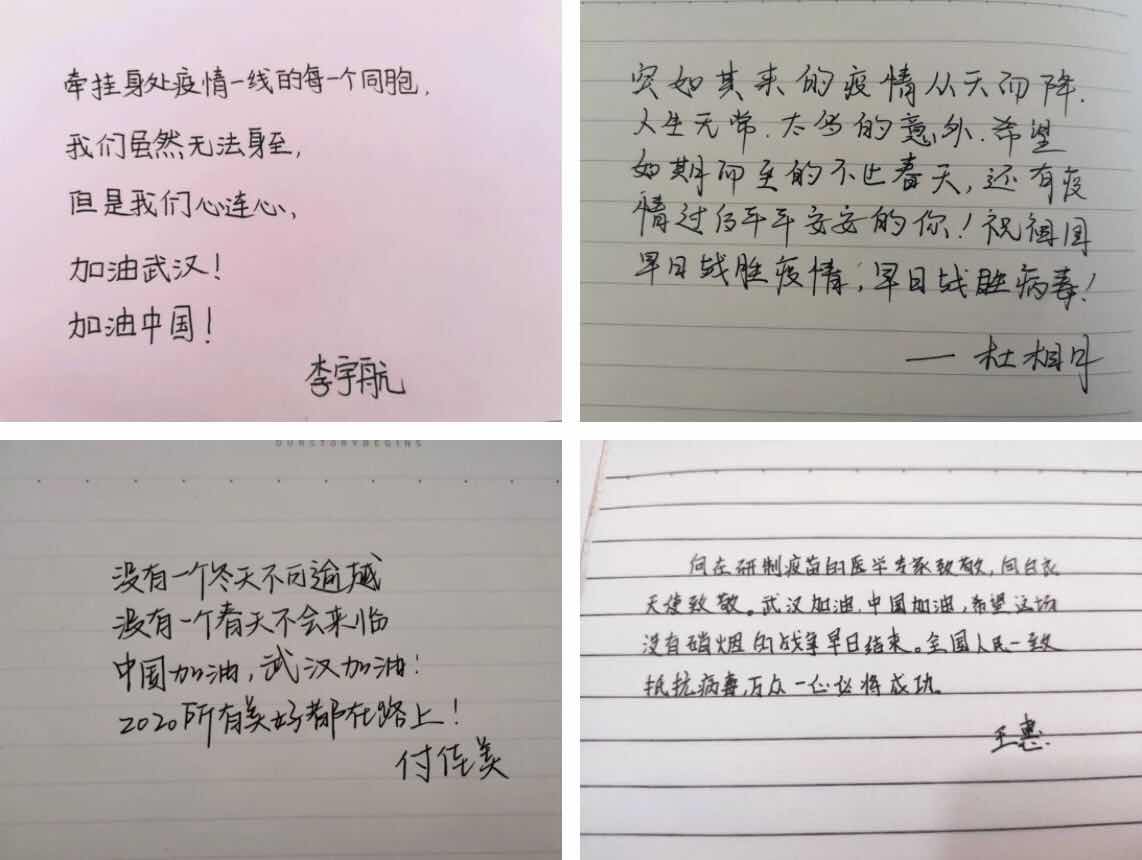 牵挂身处疫情一线的每一个同胞,
我们虽然无法身至,
但是我们心连心,
加油武汉!
加油中国!
李宇航
突如其来的疫情从天而降.
人生无常.太多的意外.希望
如期而至的不止春天,还有疫
情过后平平安安的你!祝祖国
早日战胜疫情,早日战胜病毒!
——杜相月
OURSTORYBEGINS
没有一个冬天不可逾越
没有一个春天不会来临
中国加油,武汉加油!
2020所有美好都在路上!
付佳美
向在研制疫苗的医学专家致敬,向白衣
天使致敬。武汉加油,中国加油,希望这场
没有硝烟的战争早日结束。全国人民一致
抵抗病毒,万众一心必将成功。
王惠